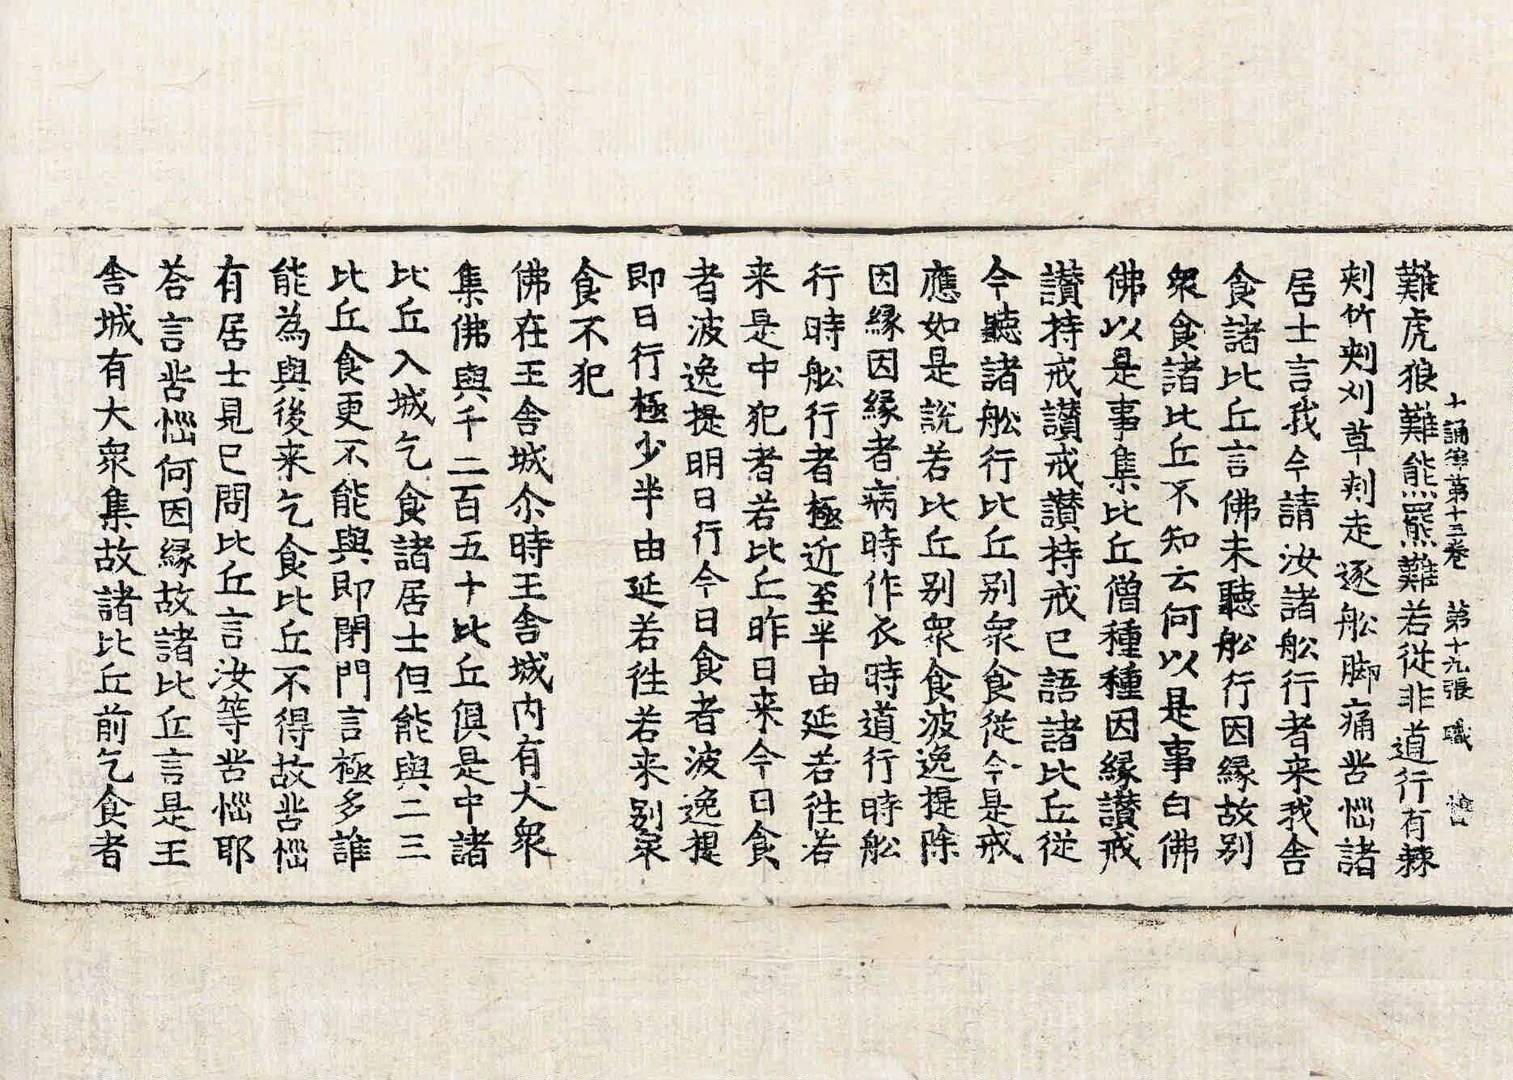 十誦律第十三卷　第十九張　職
難虎狼難熊羆難若從非道行有棘
刾竹刾刈草刾走逐舩脚痛苦惱諸
居士言我今請汝諸舩行者来我舍
食諸比丘言佛未聽舩行因縁故别
衆食諸比丘不知云何以是事白佛
佛以是事集比丘僧種種因縁讃戒
讃持戒讃戒讃持戒已語諸比丘從
今聽諸舩行比丘别衆食從今是戒
應如是說若比丘别衆食波逸提除
因縁因縁者病時作衣時道行時舩
行時舩行者極近至半由延若徃若
来是中犯者若比丘昨日来今日食
者波逸提明日行今日食者波逸提
即日行極少半由延若徃若来别衆
食不犯
佛在王舍城尒時王舍城内有大衆
集佛與千二百五十比丘俱是中諸
比丘入城乞食諸居士但能與二三
比丘食更不能與即閉門言極多誰
能為與後来乞食比丘不得故苦惱
有居士見已問比丘言汝等苦惱耶
荅言苦惱何因縁故諸比丘言是王
舍城有大衆集故諸比丘前乞食者